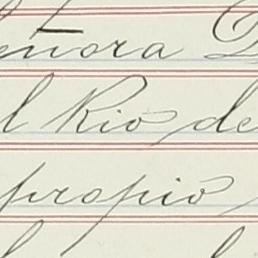 eñora D
l Rio de
propio